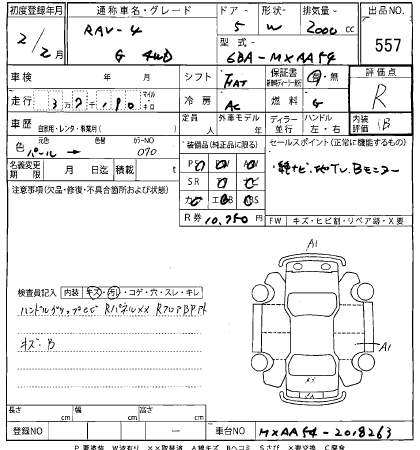 初度登録年月 通称車名・グレード ドア 形状 排気量 出品NO.
2/2月 RAV-4 5 W 2000cc 557
G 4WD 型式 6BA-MXAA54
車検 年 月 シフト FAT 保証書 有・無 評価点
走行 3万7千190 マイル キロ 冷房 AC 燃料 G R
車歴 自家用・レンタ・事業用( ) 定員 人 外車モデル 年 ディーラー 並行 ハンドル 左・右 内装評価 B
色 元色 パール 色替 カラーNO 070 装備品(純正品に限る) セールスポイント(正常に機能するもの)
名義変更期限 月 日迄 積載 純ナビ、地TV、Bモニター
注意事項(欠品・修復・不具合箇所および状態)
R券 10,750円 FW キズ・ヒビ割・リペア跡・X要
A1
検査員記入 内装 キズ・汚レ・コゲ・穴・スレ・キレ
ハンドルグリップセビ RパネルXX RフロアBPアト
キズ・B
A1
長さ cm 幅 cm 高さ cm
登録NO ー 車台NO MXAA54-2018263
P要塗装 W波有り XX取替済 A線キズ Bヘコミ Sさび X要交換 C腐食